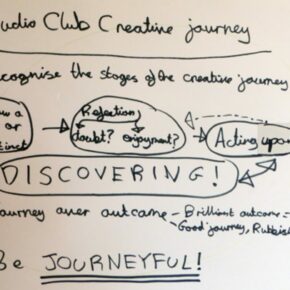 udio Club Creative journey
ecognise the stages of the creative journey
Rejection
w a
or
tinct
doubt? enjoyment?
Acting upon
DISCOVERING!
ourney over outcome – Brilliant outcome =
– Good journey, Rubbish
Be JOURNEYFUL!!